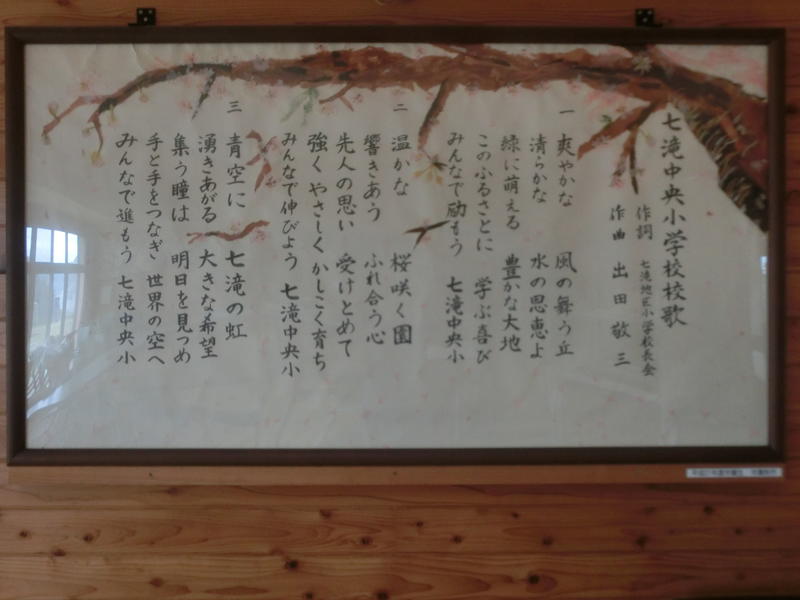 七滝中央小学校校歌
作詞 七滝地区小学校長会
作曲 出田敬三
一 爽やかな 風の舞う丘
清らかな 水の恩恵よ
緑に萌える 豊かな大地
このふるさとに 学ぶ喜び
みんなで励もう 七滝中央小
二 温かな 桜咲く園
響きあう ふれ合う心
先人の思い 受けとめて
強く やさしく かしこく育ち
みんなで伸びよう 七滝中央小
三 青空に 七滝の虹
湧きあがる 大きな希望
集う瞳は 明日を見つめ
手と手をつなぎ 世界の空へ
みんなで進もう 七滝中央小